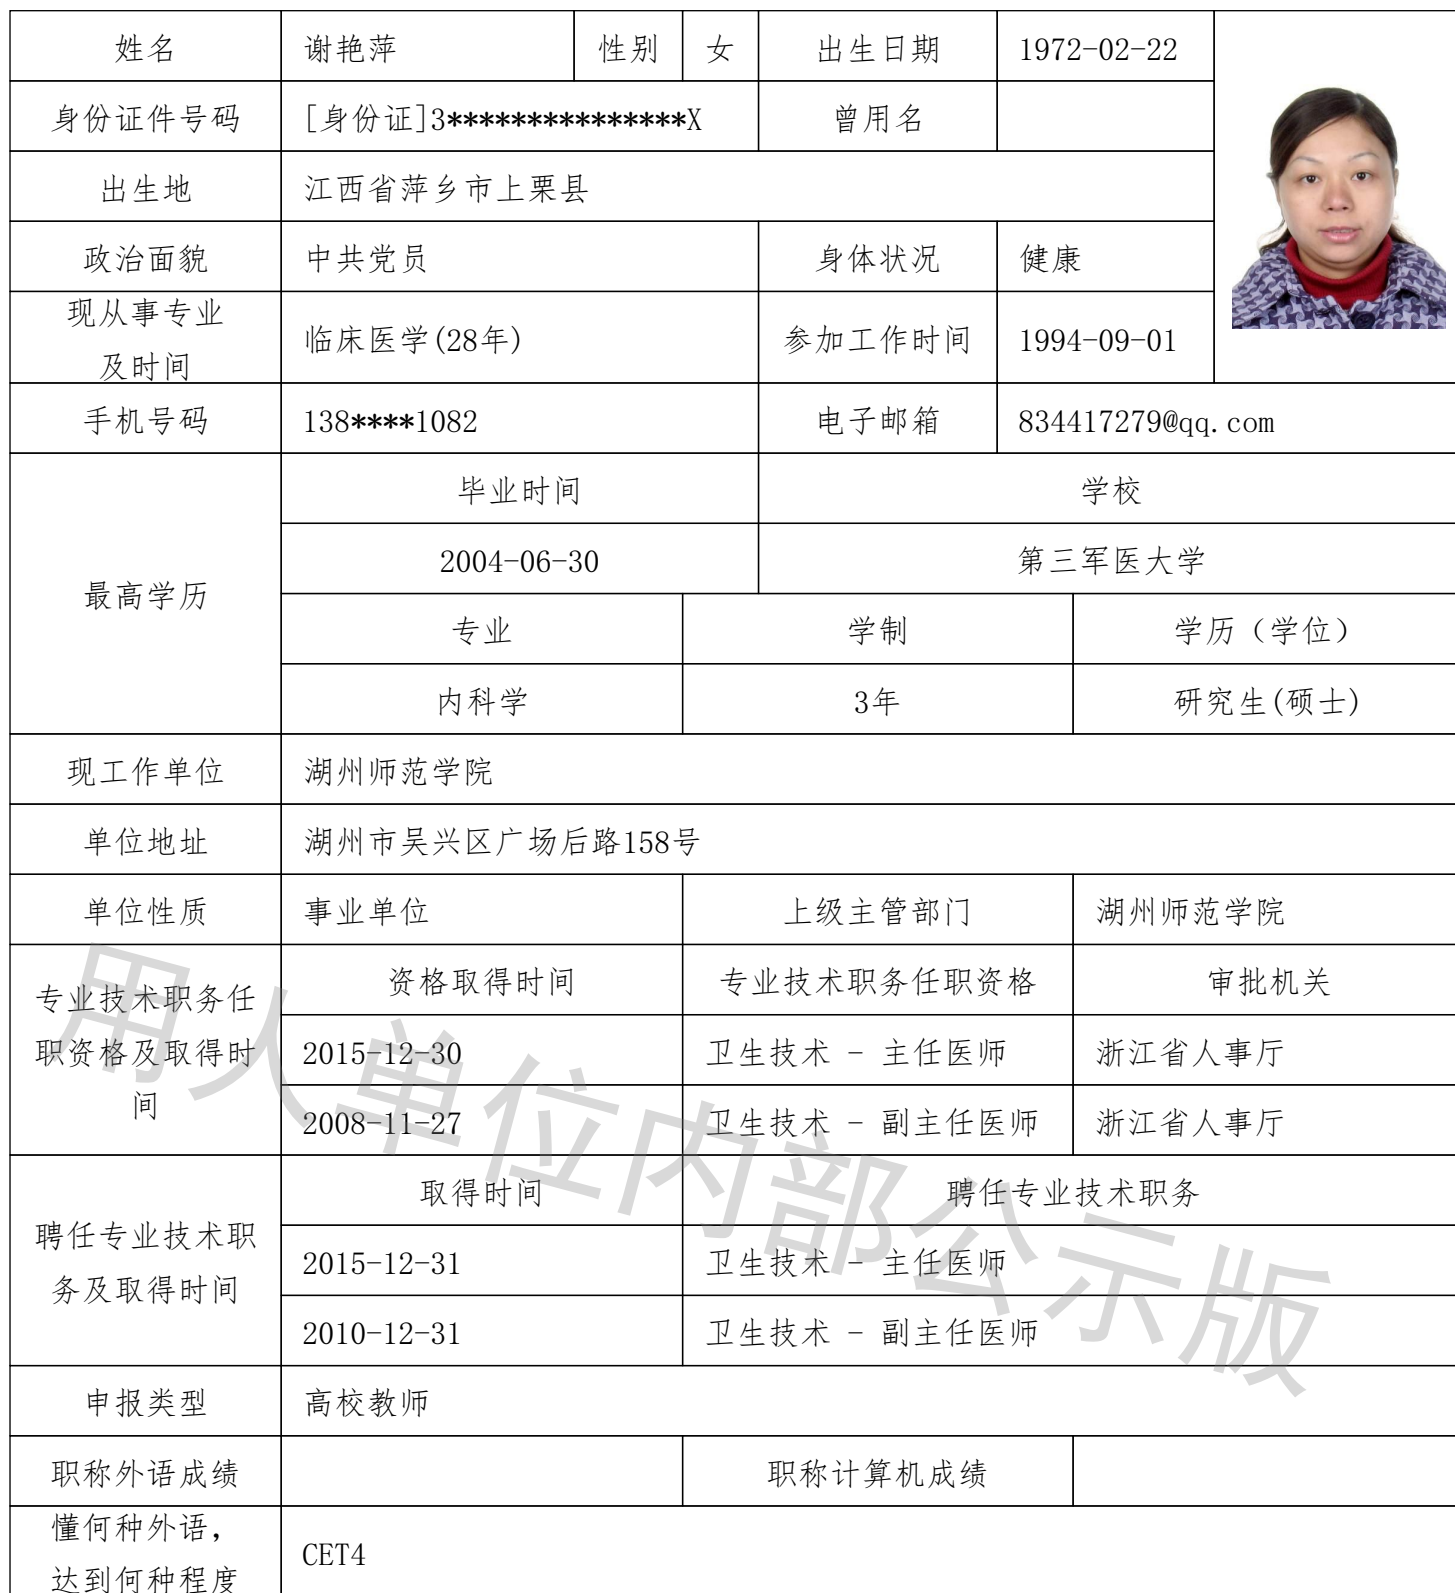 姓名 谢艳萍 性别 女 出生日期 1972-02-22
身份证件号码 [身份证]3***************X 曾用名
出生地 江西省萍乡市上栗县
政治面貌 中共党员 身体状况 健康
现从事专业
及时间 临床医学(28年) 参加工作时间 1994-09-01
手机号码 138****1082 电子邮箱 834417279@qq.com
最高学历
毕业时间 学校
2004-06-30 第三军医大学
专业 学制 学历（学位）
内科学 3年 研究生(硕士)
现工作单位 湖州师范学院
单位地址 湖州市吴兴区广场后路158号
单位性质 事业单位 上级主管部门 湖州师范学院
专业技术职务任
职资格及取得时
间
资格取得时间 专业技术职务任职资格 审批机关
2015-12-30 卫生技术 - 主任医师 浙江省人事厅
2008-11-27 卫生技术 - 副主任医师 浙江省人事厅
聘任专业技术职
务及取得时间
取得时间 聘任专业技术职务
2015-12-31 卫生技术 - 主任医师
2010-12-31 卫生技术 - 副主任医师
申报类型 高校教师
职称外语成绩 职称计算机成绩
懂何种外语，
达到何种程度 CET4
用人单位内部公示版